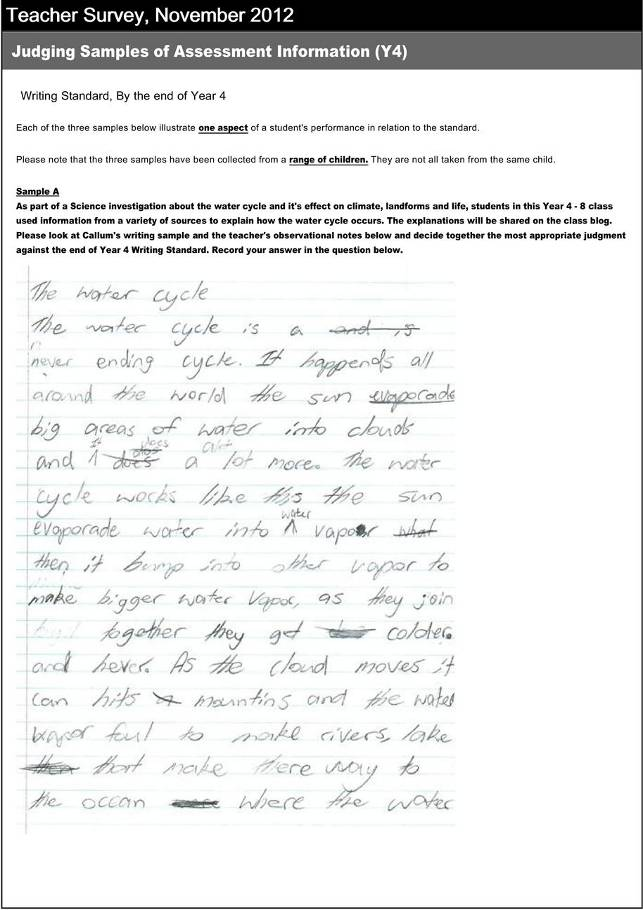 Teacher Survey, November 2012
Judging Samples of Assessment Information (Y4)
Writing Standard, By the end of Year 4
Each of the three samples below illustrate one aspect of a student's performance in relation to the standard.
Please note that the three samples have been collected from a range of children. They are not all taken from the same child.
Sample A
As part of a Science investigation about the water cycle and it's effect on climate, landforms and life, students in this Year 4 - 8 class
used information from a variety of sources to explain how the water cycle occurs. The explanations will be shared on the class blog.
Please look at Callum's writing sample and the teacher's observational notes below and decide together the most appropriate judgment
against the end of Year 4 Writing Standard. Record your answer in the question below.
The water cycle
The water cycle is a and is
never ending cycle. It happends all
around the world the sun evaporade
big areas of water into clouds
and It does a lot more. The water
cycle works like this the sun
evaporade water into water vapor what
then it bump into other vapor to
make bigger water vapor, as they join
together they get colder.
and hever. As the cloud moves it
can hits mountins and the water
vapor faul to make rivers, lake
then that make there way to
the occan where the water